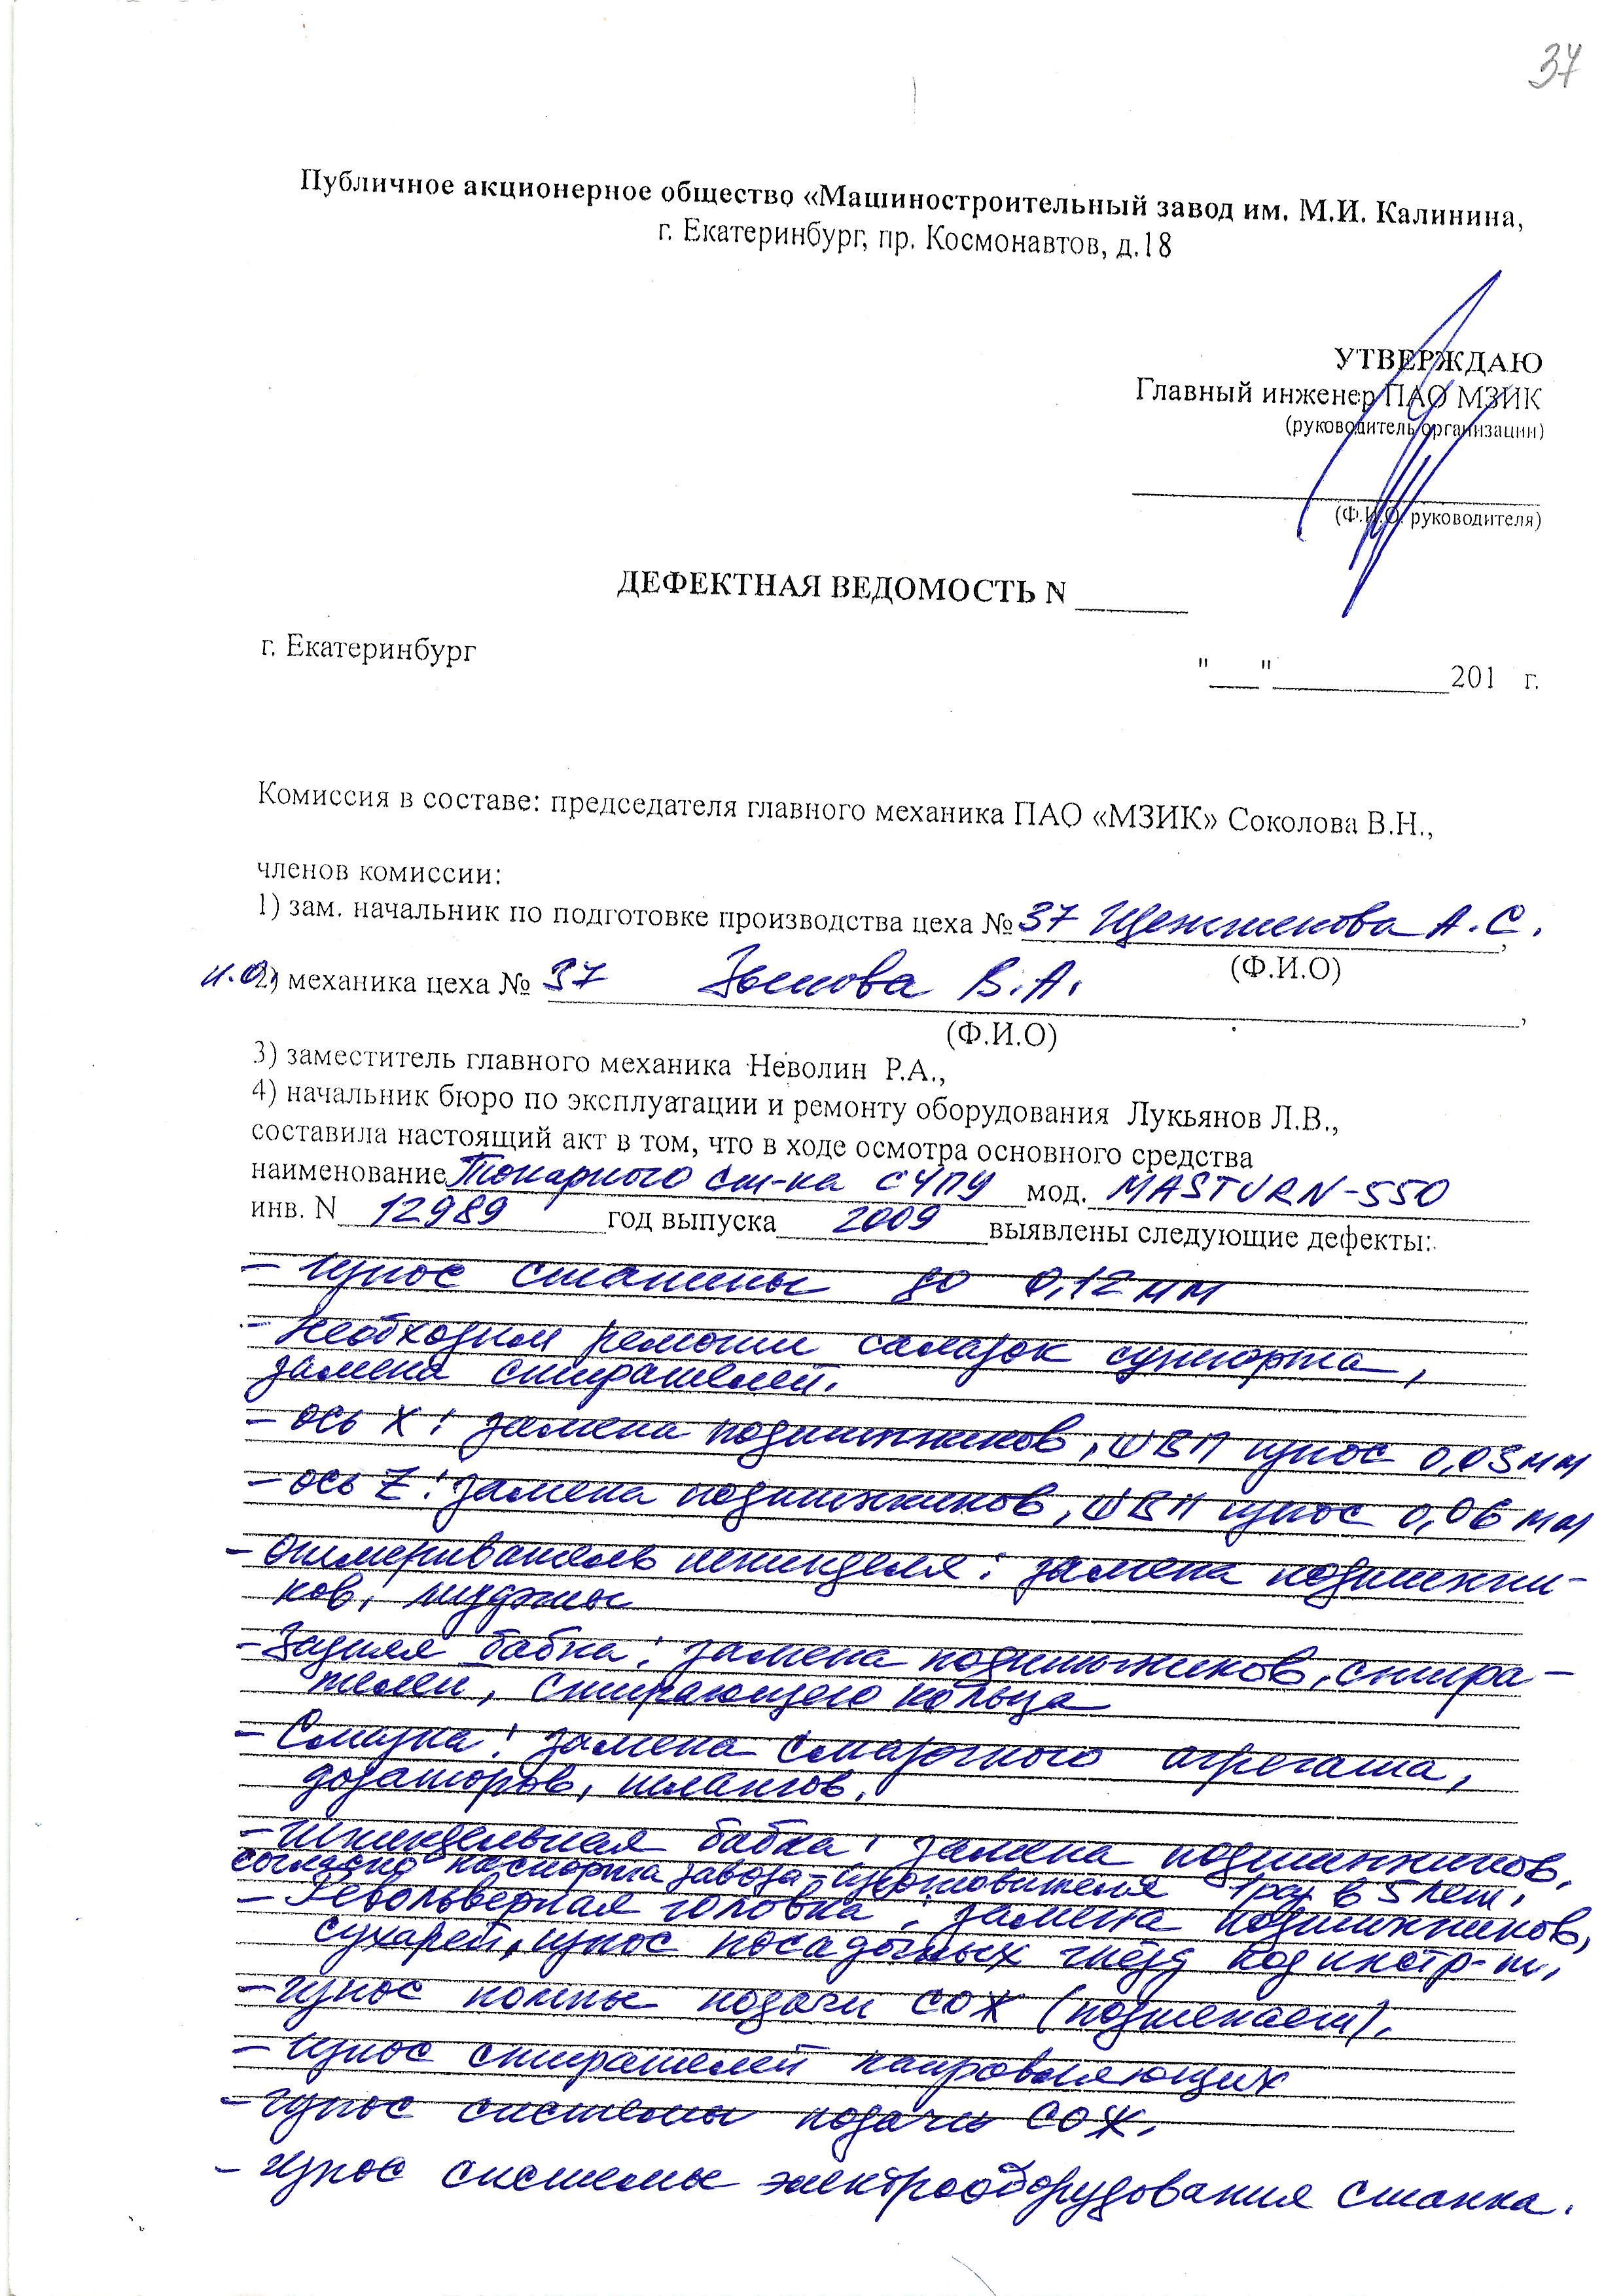 37
Публичное акционерное общество «Машиностроительный завод им. М.И. Калинина,
г. Екатеринбург, пр. Космонавтов, д.18
УТВЕРЖДАЮ
Главный инженер ПАО МЗИК
(руководитель организации)
(Ф.И.О. руководителя)
ДЕФЕКТНАЯ ВЕДОМОСТЬ N ______
г. Екатеринбург
"___"___________201 г.
Комиссия в составе: председателя главного механика ПАО «МЗИК» Соколова В.Н.,
членов комиссии:
1) зам. начальник по подготовке производства цеха № 37 А.С.,
(Ф.И.О)
и.о. 2) механика цеха № 37 Зыкова В.А.,
(Ф.И.О)
3) заместитель главного механика Неволин Р.А.,
4) начальник бюро по эксплуатации и ремонту оборудования Лукьянов Л.В.,
составила настоящий акт в том, что в ходе осмотра основного средства
наименование Токарного ст-ка с ЧПУ мод. MASTURN-550
инв. N 12989 год выпуска 2009 выявлены следующие дефекты:
- Износ станины до 0,12 мм
- Необходим ремонт салазок суппорта,
замена стирателей.
- ось X: замена подшипников, ШВП износ 0,03мм
- ось Z: замена подшипников, ШВП износ 0,06 мм
- шпинделя: замена подшипни-
ков, муфты
- Задняя бабка: замена подшипников, стира-
телей, стирающего кольца
- Смазка: замена смазочного агрегата,
дозаторов, шлангов.
- Шпиндельная бабка: замена подшипников,
согласно паспорта завода-изготовителя 1 раз в 5 лет.
- Револьверная головка: замена подшипников,
сухарей, износ посадочных гнёзд под инстр-т.
- Износ помпы подачи СОЖ (подтекает).
- Износ стирателей направляющих
- Износ системы подачи СОЖ.
- Износ системы электрооборудования станка.